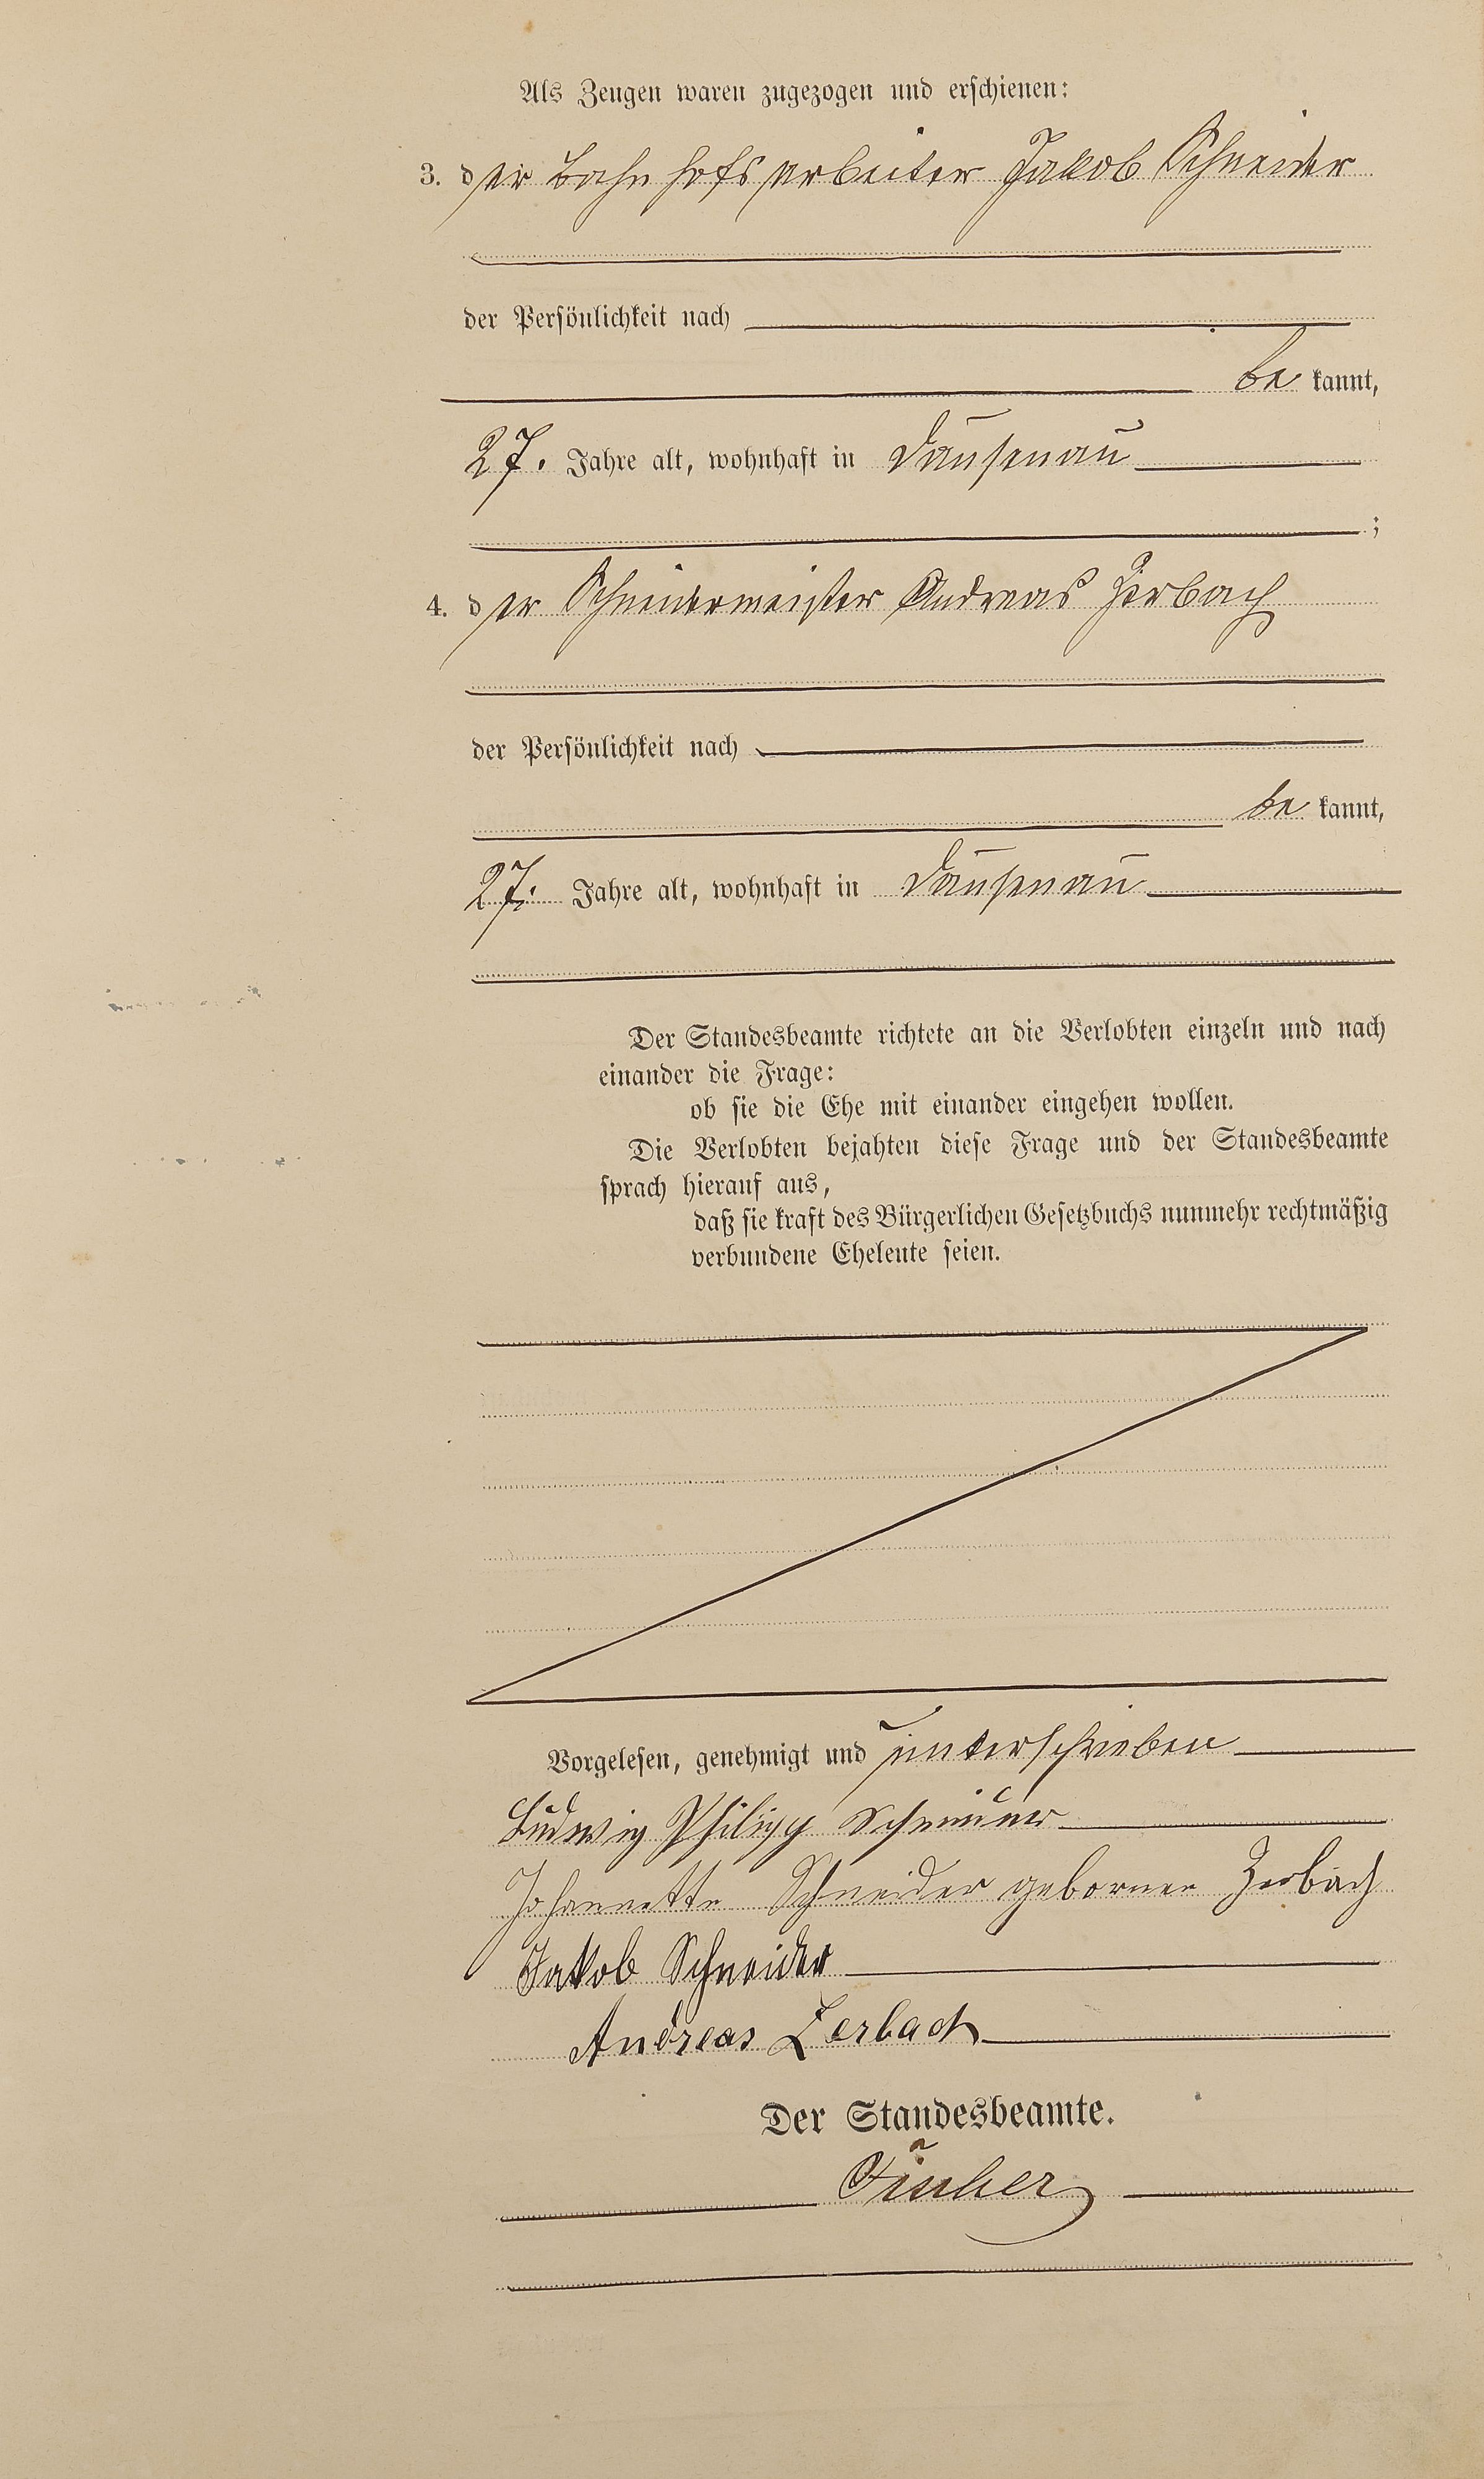 Als Zeugen waren zugezogen und erschienen:
3. der Bahnhofsarbeiter Jakob Schneider
der Persönlichkeit nach
be kannt,
27. Jahre alt, wohnhaft in Dausenau
;
4. der Schneidermeister Andreas Zerbach
der Persönlichkeit nach
be kannt,
27. Jahre alt, wohnhaft in Dausenau
Der Standesbeamte richtete an die Verlobten einzeln und nach
einander die Frage:
ob sie die Ehe mit einander eingehen wollen.
Die Verlobten bejahten diese Frage und der Standesbeamte
sprach hierauf aus,
daß sie kraft des Bürgerlichen Gesetzbuchs nunmehr rechtmäßig
verbundene Eheleute seien.
Vorgelesen, genehmigt und unterschrieben
Ludwig Philipp Schneider
Johannette Schneider geborner Zerbach
Jakob Schneider
Andreas Zerbach
Der Standesbeamte.